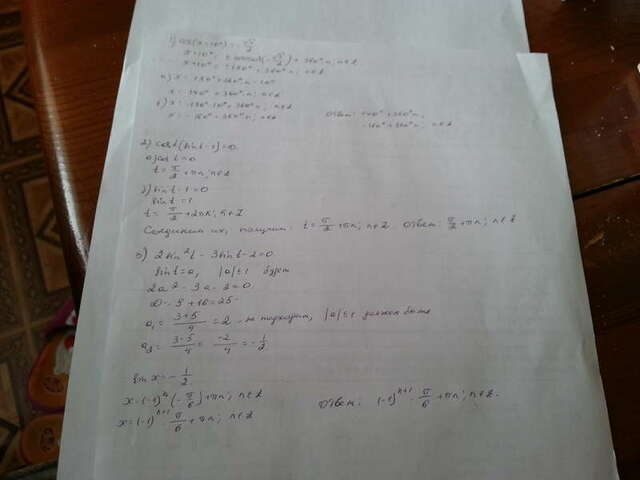 1) cos(x+10°) = -√3/2
x+10° = ± arccos(-√3/2) + 360°n; n∈Z
x+10° = ±150° + 360°n; n∈Z
а) x = 150° + 360°n - 10°
x = 140° + 360°n; n∈Z
б) x = -150° - 10° + 360°n; n∈Z
x = -160° + 360°n; n∈Z
Ответ: 140° + 360°n,
-160° + 360°n n∈Z
2) cos t (sin t - 1) = 0
а) cos t = 0
t = π/2 + πn; n∈Z
б) sin t - 1 = 0
sin t = 1
t = π/2 + 2πn; n∈Z
Соединим их, получим: t = π/2 + πn; n∈Z Ответ: π/2 + πn; n∈Z
3) 2sin²t - 3sin t - 2 = 0
sin t = a, |a| ≤ 1 будет
2a² - 3a - 2 = 0
a₁ = 3+5/4 = 2 - не подходит, |a| ≤ 1 должен быть
a₂ = 3-5/4 = -2/4 = -1/2
sin x = -1/2
x = (-1)ⁿ (-π/6) + πn; n∈Z
x = (-1)ⁿ⁺¹ · π/6 + πn; n∈Z Ответ: (-1)ⁿ⁺¹ · π/6 + πn; n∈Z.